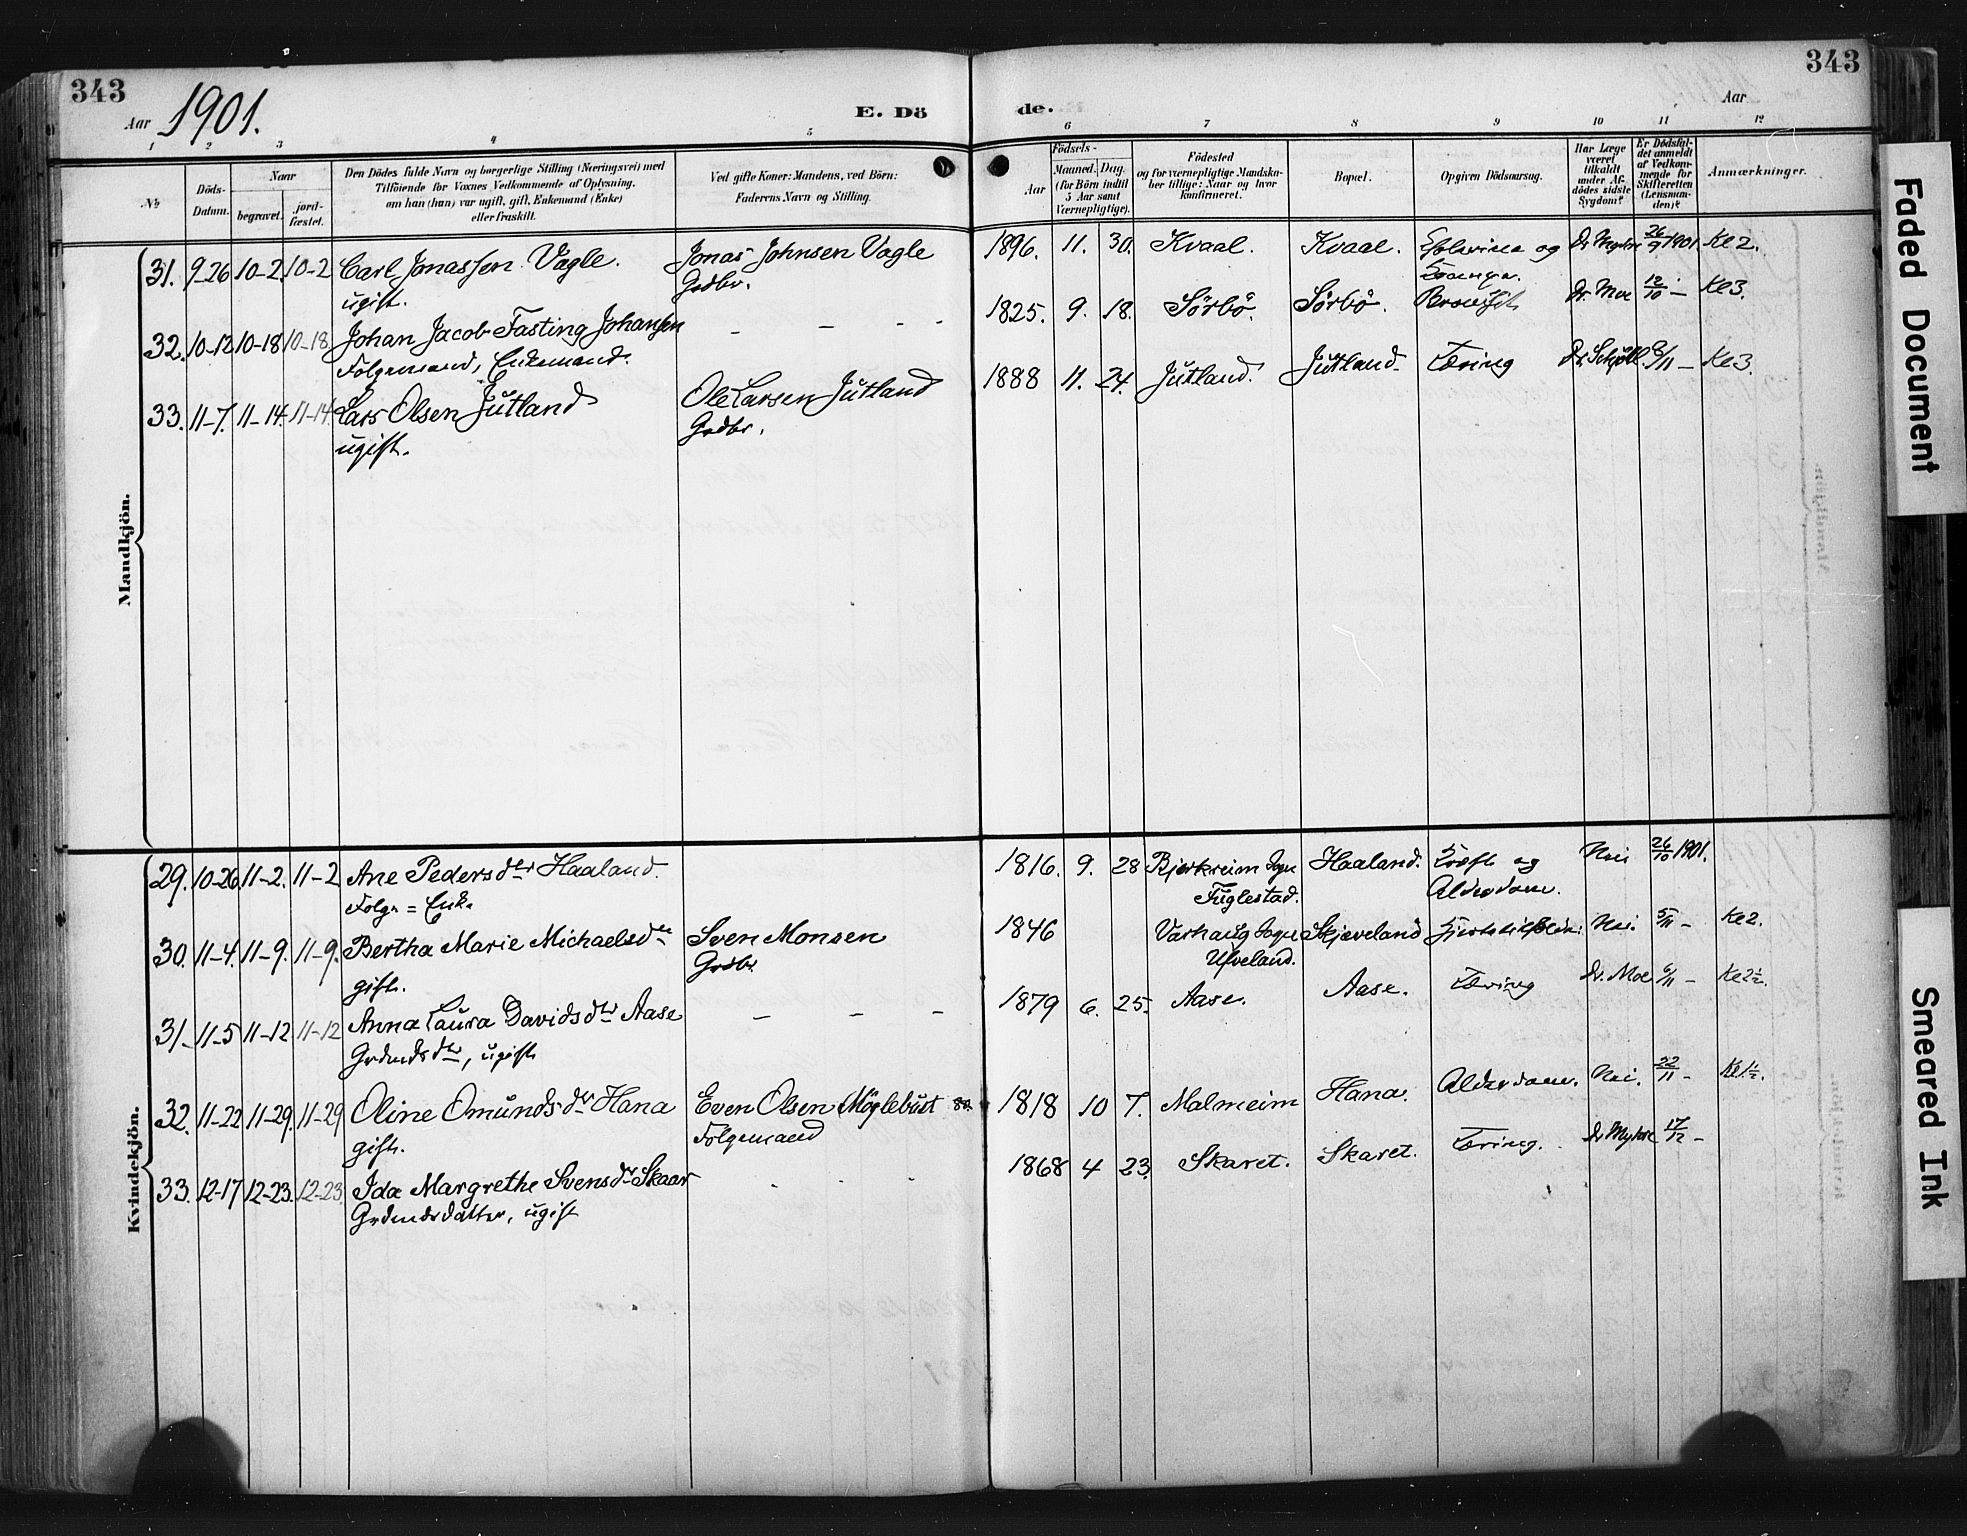 343
Aar 1901.
E. Dö
de.
Aar
343
1 2 3 4 5 6 7 8 9 10 11 12
No
Döds-
Datum.
Naar
begravet.
jord-
fæstet.
Den Dödes fulde Navn og borgerlige Stilling (Næringsvei) med
Tilföiende for Voxnes Vedkommende af Oplysning,
om han (hun) var ugift, gift, Enkemand (Enke)
eller fraskilt.
Ved gifte Koner: Mandens, ved Börn:
Faderens Navn og Stilling.
Födsels-
Aar
Maaned.
Dag.
(for Börn indtil
5 Aar samt
Værnepligtige).
Födested
og for værnepligtige Mandska-
ber tillige: Naar og hvor
konfirmeret.
Bopæl.
Opgiven Dödsaarsag.
Har Læge
været
tilkaldt
under Af-
dödes sidste
Sygdom?
Er Dödsfal-
det anmeldt
af Vedkom-
mende for
Skifteretten
(Lensman-
den)?
Anmærkninger.
Mandkjön.
31. 9-26 10-2. 10-2 Carl Jonassen Vagle. Jonas Johnsen Vagle 1896. 11. 30. Kvaal. Kvaal. og 26/9 1901. Kl 2.
ugift. Grdbr.
32. 10-12 10-18 10-18 Johan Jacob Fasting Johansen - - - - 1825. 9. 18. Sörbö. Sörbö. Dr. Moe 12/10 - Kl 3.
Folgemand, Enkemand.
33. 11-7. 11-14. 11-14. Lars Olsen Jutland Ole Larsen Jutland 1888 11. 24. Jutland. Jutland. Tæring /11 - Kl 3.
ugift. Grdbr.
Kvindekjön.
29. 10-26 11-2. 11-2 Ane Pedersdtr Haaland. 1816. 9. 28 Bjerkreim Sogn Haaland. Kræft og Nei 26/10 1901.
Folgr = Enke Fuglestad. Alderdom.
30. 11-4. 11-9. 11-9. Bertha Marie Michaelsdtr Sven Monsen 1846 Varhaug Sogn Skjæveland Nei. 5/11 - Kl 2.
gift. Grdbr. Ufveland.
31. 11-5 11-12 11-12 Anna Laura Davidsdtr Aase - - - 1879 6. 25. Aase. Aase. Tæring Dr. Moe 6/11 - Kl 2½.
Grdmdsdtr, ugift
32. 11-22 11-29. 11-29 Oline Omundsdtr Hana Even Olsen Möglebust 1818 10 7. Malmeim Hana. Alderdom. Nei. 22/11 - Kl 1½.
gift. Folgemand
33. 12-17 12-23. 12-23. Ida Margrethe Svensdtr Skaar - - - 1868 4 23. Skaret. Skaret. Tæring. 17/12 -
Grdmdsdatter, ugift
Faded Document
Smeared Ink